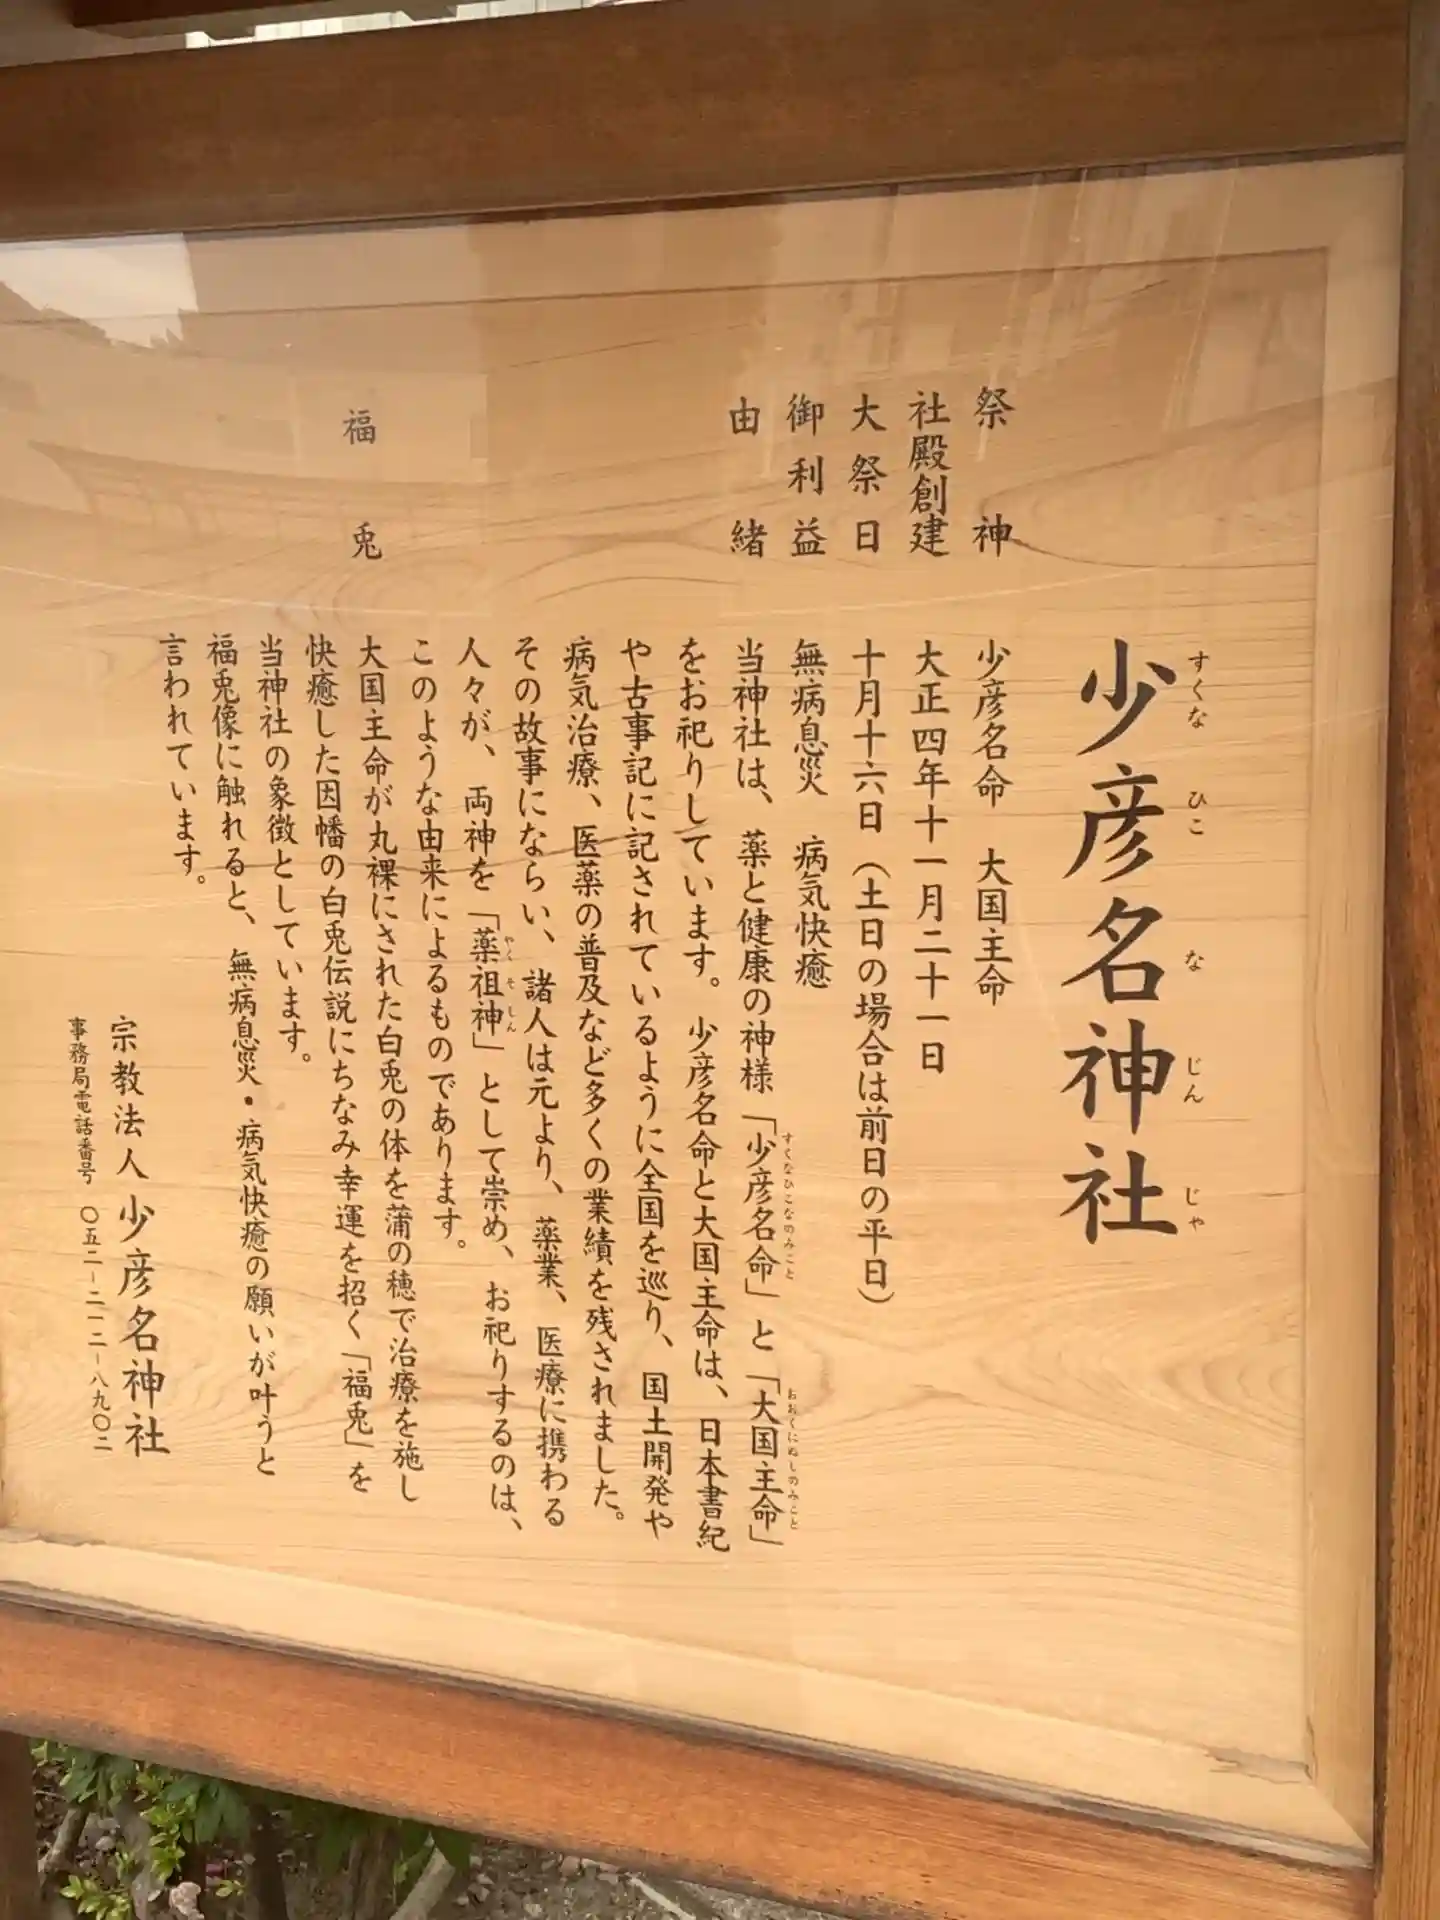 少彦名神社
すくな ひこ な じん じゃ
祭神 少彦名命 大国主命
社殿創建 大正四年十一月二十一日
大祭日 十月十六日(土日の場合は前日の平日)
御利益 無病息災 病気快癒
由緒 当神社は、薬と健康の神様「少彦名命」と「大国主命」
すくなひこなのみこと おおくにぬしのみこと
をお祀りしています。少彦名命と大国主命は、日本書紀
や古事記に記されているように全国を巡り、国土開発や
病気治療、医薬の普及など多くの業績を残されました。
その故事にならい、諸人は元より、薬業、医療に携わる
人々が、両神を「薬祖神」として崇め、お祀りするのは、
やくそしん
このような由来によるものであります。
福兎 大国主命が丸裸にされた白兎の体を蒲の穂で治療を施し
快癒した因幡の白兎伝説にちなみ幸運を招く「福兎」を
当神社の象徴としています。
福兎像に触れると、無病息災・病気快癒の願いが叶うと
言われています。
宗教法人 少彦名神社
事務局電話番号 〇五二-二一二-八九〇二